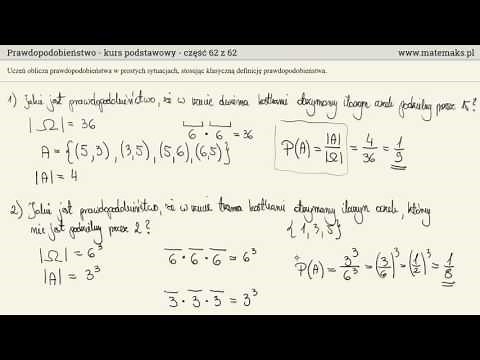 Prawdopodobieństwo - kurs podstawowy - część 62 z 62
www.matemaks.pl
Uczeń oblicza prawdopodobieństwa w prostych sytuacjach, stosując klasyczną definicję prawdopodobieństwa.
1) Jakie jest prawdopodobieństwo, że w rzucie dwiema kostkami otrzymamy iloczyn oczek podzielny przez 15?
|Ω| = 36
6 · 6 = 36
A = {(5,3), (3,5), (5,6), (6,5)}
|A| = 4
P(A) = |A|/|Ω| = 4/36 = 1/9
2) Jakie jest prawdopodobieństwo, że w rzucie trzema kostkami otrzymamy iloczyn oczek, który
nie jest podzielny przez 2?
{1, 3, 5}
|Ω| = 6³
6 · 6 · 6 = 6³
|A| = 3³
3 · 3 · 3 = 3³
P(A) = 3³/6³ = (3/6)³ = (1/2)³ = 1/8